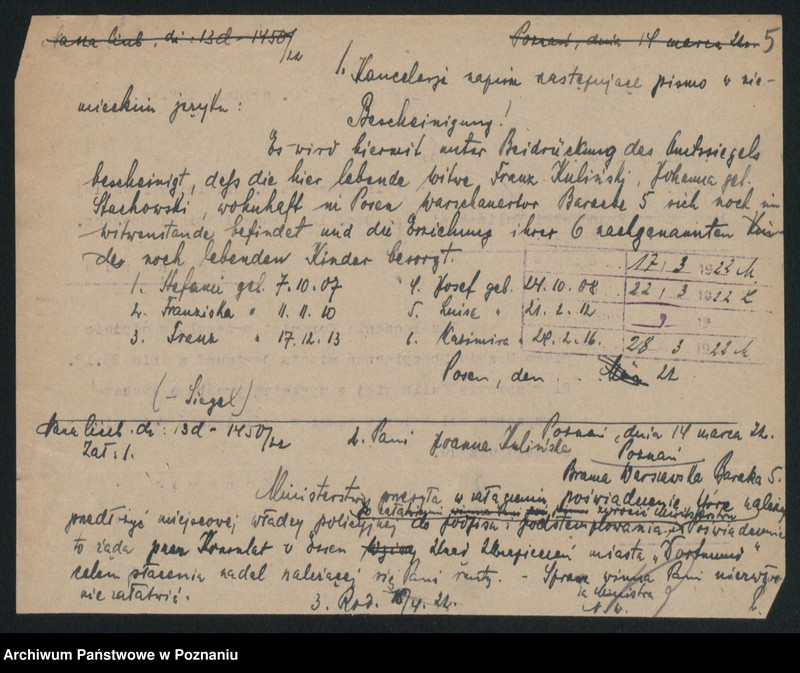 Nasza liczb. dz: 13d - 1450/22 Poznań, dnia 14 marca 22r. 5
1. Kancelarja napisze następujące pismo w nie-
mieckim języku:
Bescheinigung!
Es wird hiermit unter Beidrückung des Amtssiegels
bescheinigt, dass die hier lebende Witwe, Franz Kuliński, Johanna geb.
Stachowski, wohnhaft in Posen Baracke 5 sich noch im
Witwenstande befindet und die Erziehung ihrer 6 nachgenannten
noch lebenden Kinder besorgt.
17 / 3 1922
1. Stefanie geb. 7.10.07 4. Josef geb. 24.10.08 22 / 3 1922
2. Franziska " 11.11.10 5. Luise " 21.2.12 19
3. Franz " 17.12.13 6. Kasimira " 28.2.16. 28 3 1922
Posen, den März 22
(- Siegel)
Nasza liczb. dz: 13d - 1450/22 2. Pani Joanna Kulińska Poznań, dnia 14 marca 22.
Zał: 1. Poznań
Brama Warszawska Baraka 5.
Ministerstwo przesyła w załączeniu poświadczenie, które należy
przedłożyć miejscowej władzy policyjnej do podpisu i podstemplowania. Poświadczenia
to żąda przez Konsulat w Essen Urząd Ubezpieczeń miasta "Dortmund"
celem płacenia nadal należącej się Pani renty. - Sprawę winna Pani niezwło-
nie załatwić. za Ministra
3. Rod. 18/4. 22.
Archiwum Państwowe w Poznaniu